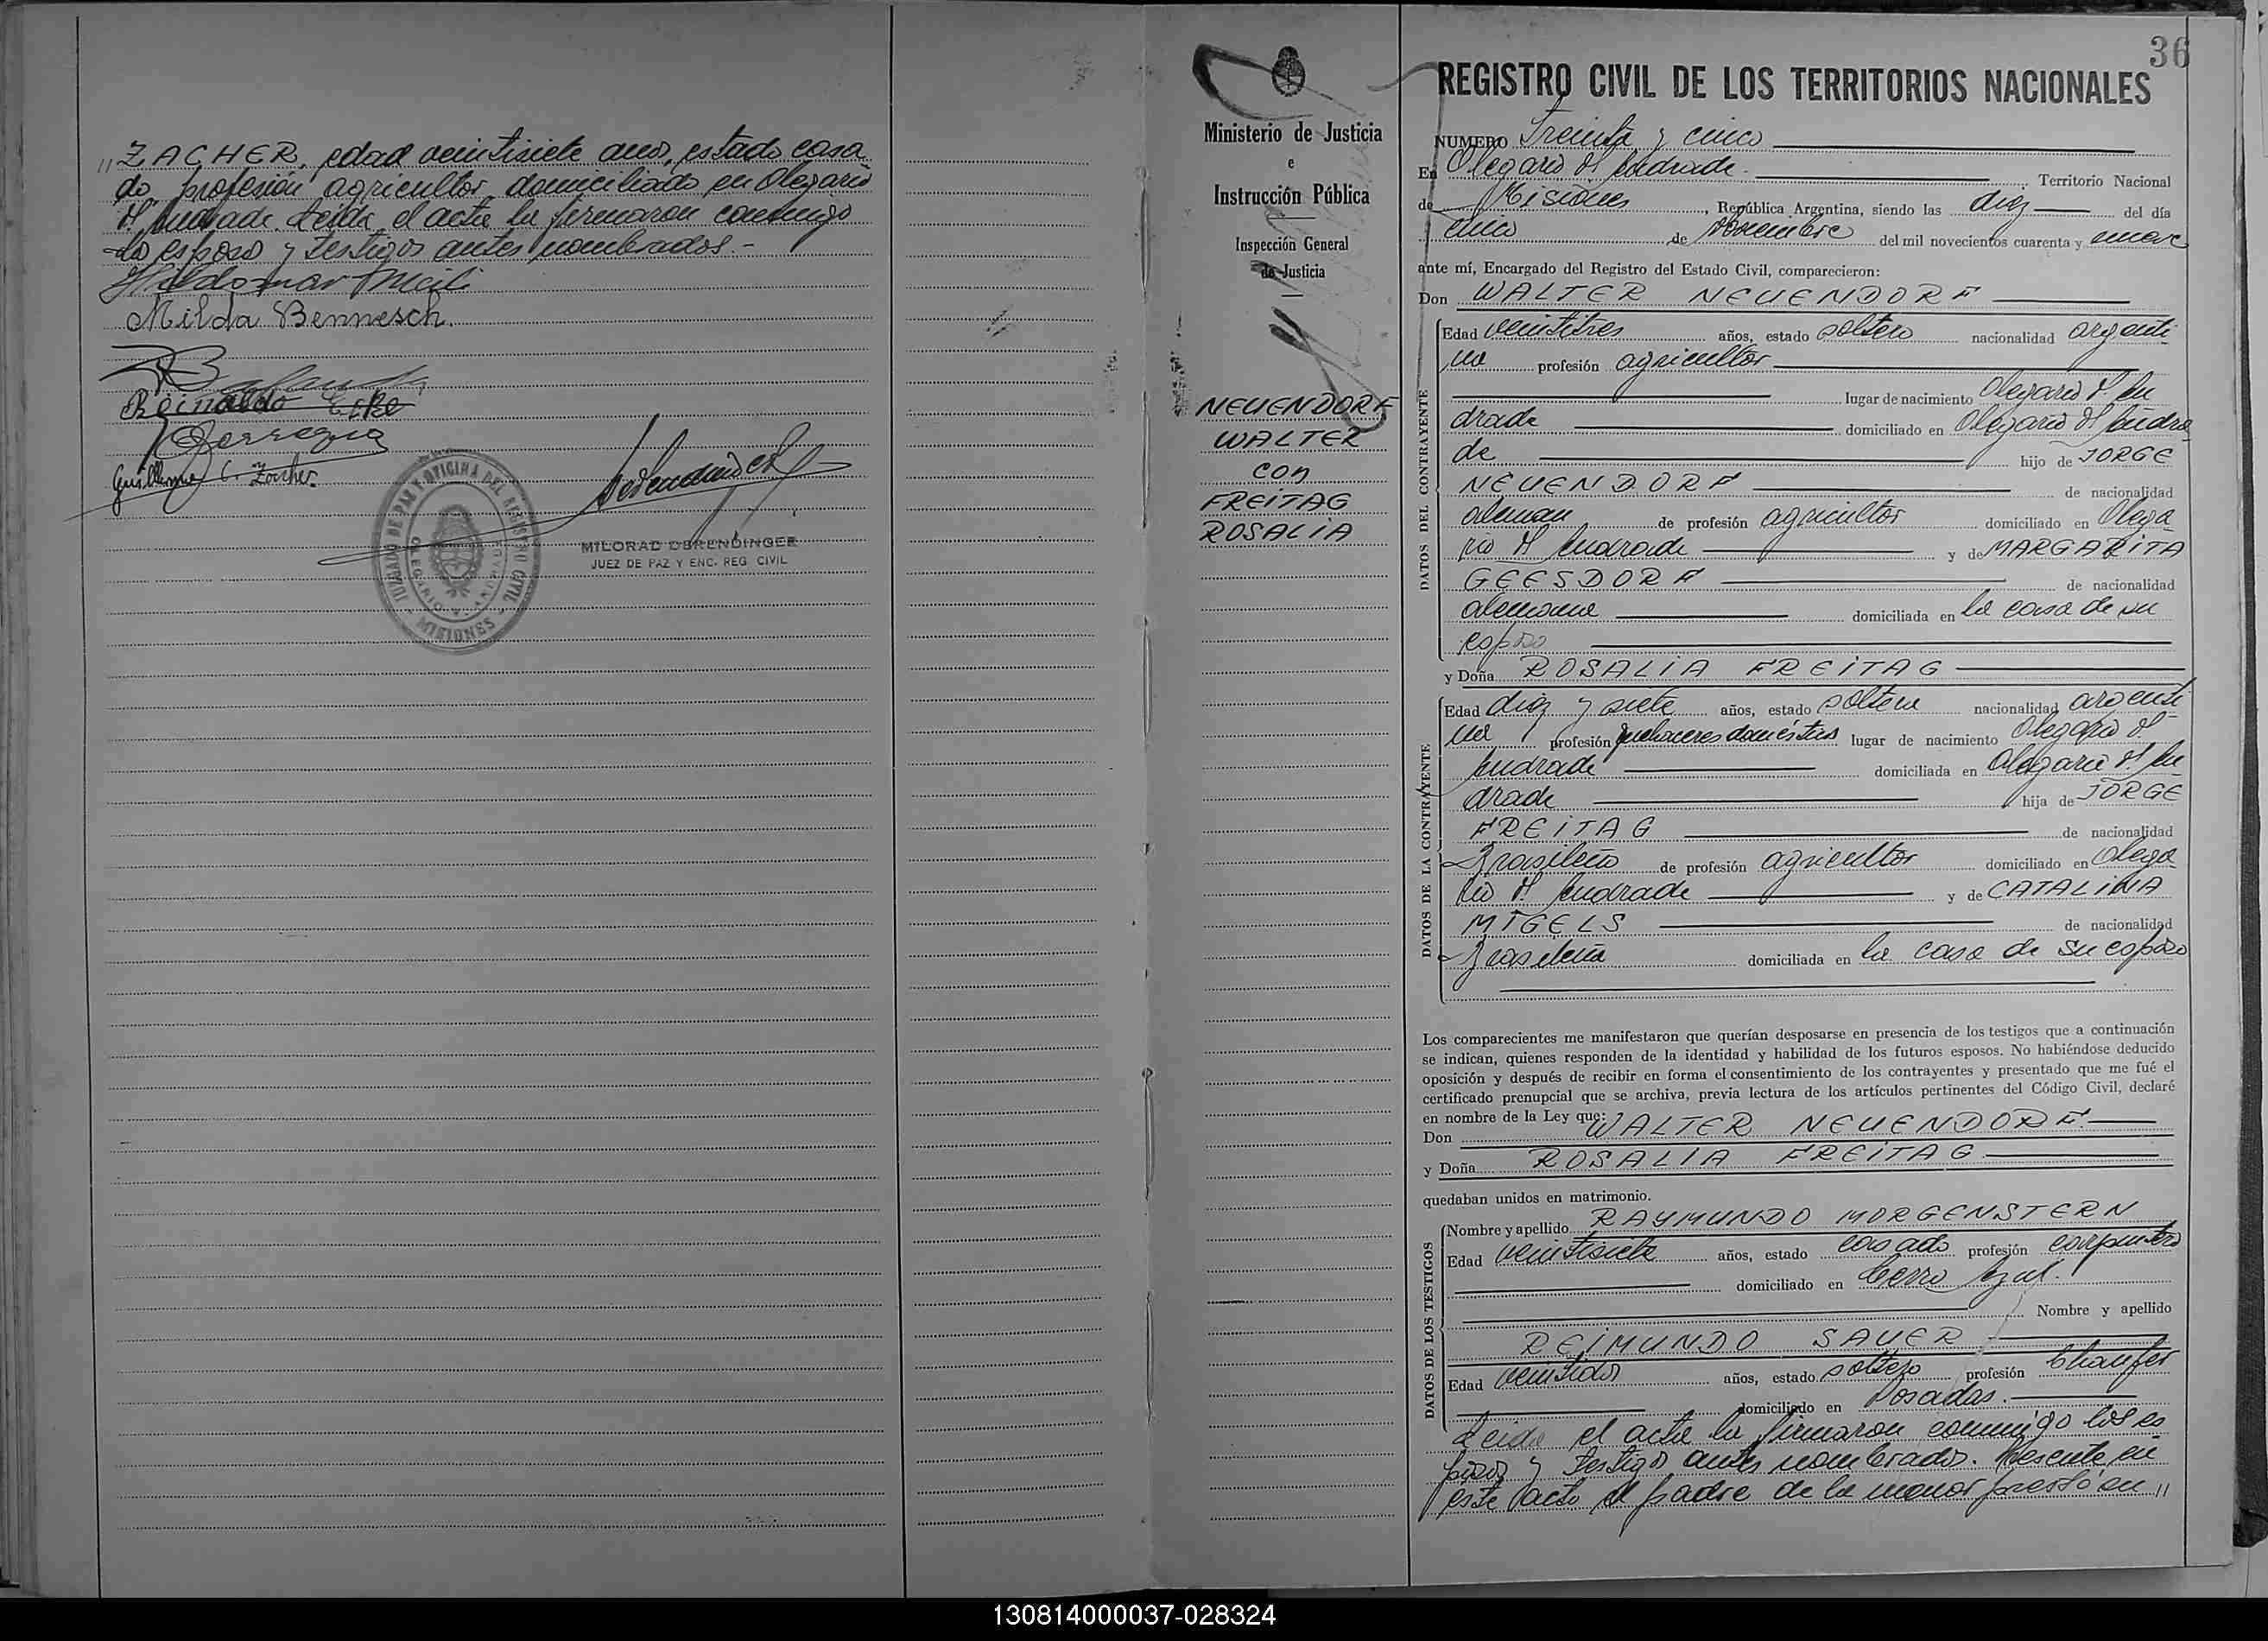 " ZACHER, edad veintisiete años, estado casa
do, profesión agricultor, domiciliado en Olegario
V. Andrade. Leida el acta la firmaron conmigo
los esposos y testigos antes nombrados.-
Milda Bennesch.
Reinaldo
Guillermo C. Zacher
JUZGADO DE PAZ Y OFICINA DEL REGISTRO CIVIL
OLEGARIO V. ANDRADE
MISIONES
MILORAD DERENDINGER
JUEZ DE PAZ Y ENC. REG CIVIL
Ministerio de Justicia
e
Instrucción Pública
Inspección General
de Justicia
NEUENDORF
WALTER
con
FREITAG
ROSALIA
36
REGISTRO CIVIL DE LOS TERRITORIOS NACIONALES
NUMERO Treinta y cinco
En Olegario V. Andrade. Territorio Nacional
de Misiones, República Argentina, siendo las diez del día
cinco de Noviembre del mil novecientos cuarenta y nueve
ante mí, Encargado del Registro del Estado Civil, comparecieron:
Don WALTER NEUENDORF
DATOS DEL CONTRAYENTE
Edad veintitres años, estado soltero nacionalidad argenti
no profesión agricultor
lugar de nacimiento Olegario V. An
drade domiciliado en Olegario V. Andra
de hijo de JORGE
NEUENDORF de nacionalidad
aleman de profesión agricultor domiciliado en Olega
rio V. Andrade y de MARGARITA
GEESDORF de nacionalidad
alemana domiciliada en la casa de su
esposo
y Doña ROSALIA FREITAG
DATOS DE LA CONTRAYENTE
Edad diez y siete años, estado soltera nacionalidad argenti
na profesión quehaceres domésticos lugar de nacimiento Olegario V.
Andrade domiciliada en Olegario V. An
drade hija de JORGE
FREITAG de nacionalidad
Brasileño de profesión agricultor domiciliado en Olega
rio V. Andrade y de CATALINA
MIGELS de nacionalidad
Brasileña domiciliada en la casa de su esposo
Los comparecientes me manifestaron que querían desposarse en presencia de los testigos que a continuación
se indican, quienes responden de la identidad y habilidad de los futuros esposos. No habiéndose deducido
oposición y después de recibir en forma el consentimiento de los contrayentes y presentado que me fué el
certificado prenupcial que se archiva, previa lectura de los artículos pertinentes del Código Civil, declaré
en nombre de la Ley que:
Don WALTER NEUENDORF.
y Doña ROSALIA FREITAG
quedaban unidos en matrimonio.
DATOS DE LOS TESTIGOS
Nombre y apellido RAYMUNDO MORGENSTERN
Edad veintisiete años, estado casado profesión carpintero
domiciliado en Cerro Azul.
Nombre y apellido
REIMUNDO SAUER
Edad veintidos años, estado soltero profesión Chaufer
domiciliado en Posadas.
Leida el acta la firmaron conmigo los es
posos y testigos antes nombrados. Presente en
este acto el padre de la menor prestó su "
130814000037-028324